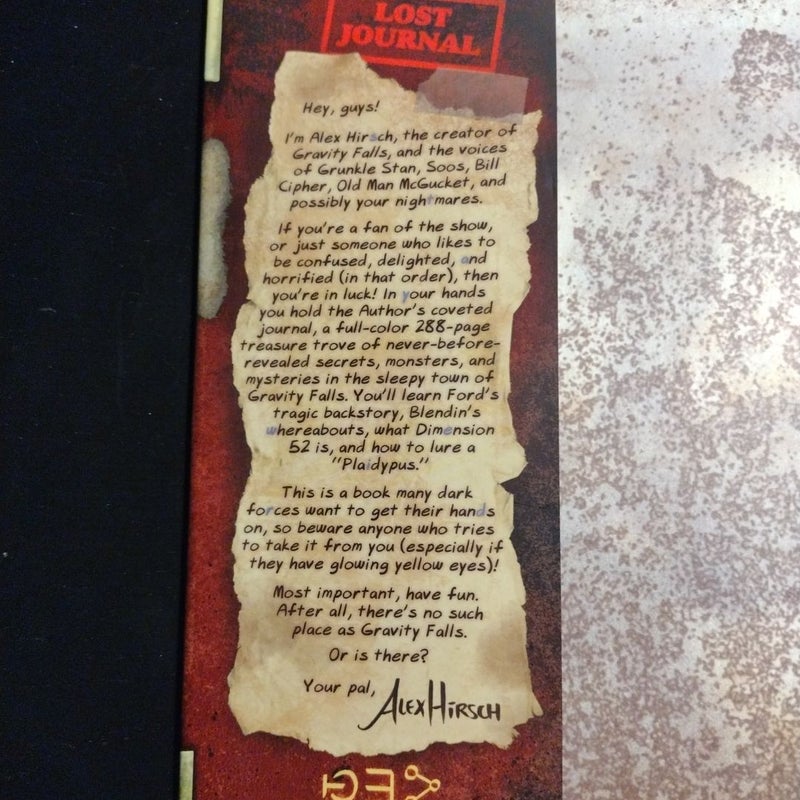 LOST
JOURNAL
Hey, guys!
I'm Alex Hirsch, the creator of
Gravity Falls, and the voices
of Grunkle Stan, Soos, Bill
Cipher, Old Man McGucket, and
possibly your nightmares.
If you're a fan of the show,
or just someone who likes to
be confused, delighted, and
horrified (in that order), then
you're in luck! In your hands
you hold the Author's coveted
journal, a full-color 288-page
treasure trove of never-before-
revealed secrets, monsters, and
mysteries in the sleepy town of
Gravity Falls. You'll learn Ford's
tragic backstory, Blendin's
whereabouts, what Dimension
52 is, and how to lure a
"Plaidypus."
This is a book many dark
forces want to get their hands
on, so beware anyone who tries
to take it from you (especially if
they have glowing yellow eyes)!
Most important, have fun.
After all, there's no such
place as Gravity Falls.
Or is there?
Your pal,
ALEX HIRSCH